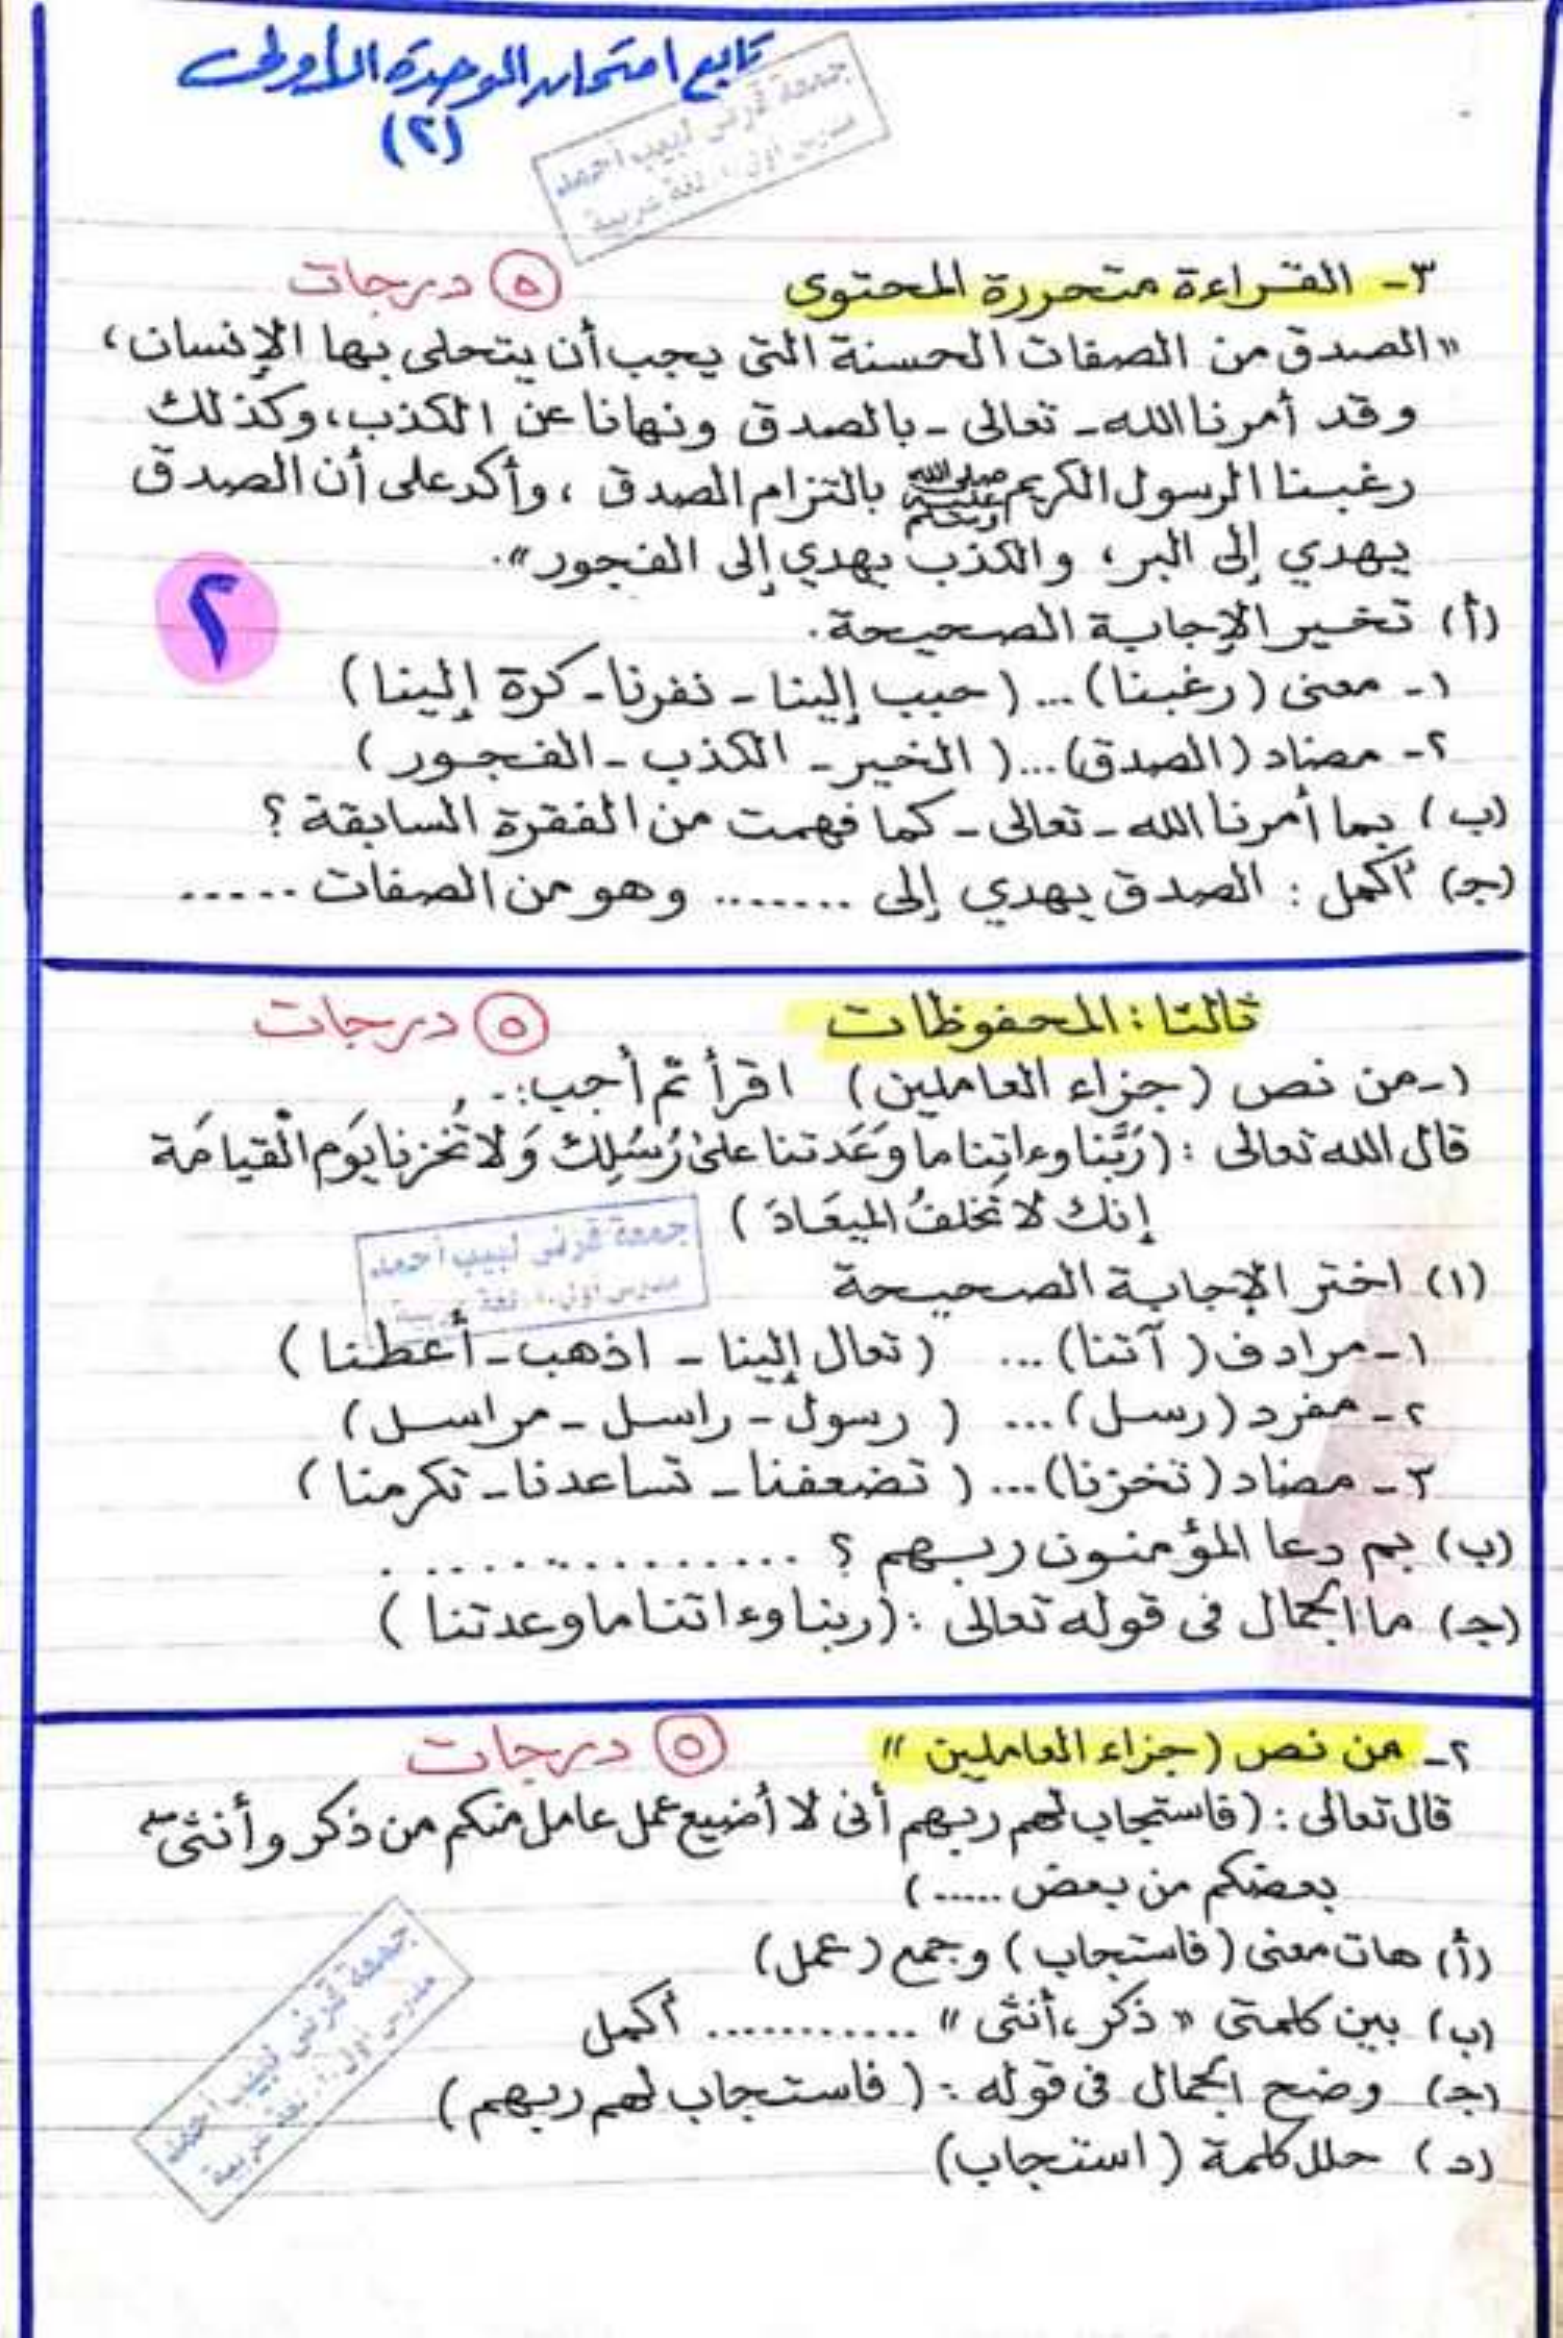 تابع امتحان الوحدة الأولى
(٢)
جمعة قرني لبيب أحمد
مدرس أول أ. لغة عربية
٣- القراءة متحررة المحتوى ٥ درجات
"الصدق من الصفات الحسنة التي يجب أن يتحلى بها الإنسان،
وقد أمرنا الله - تعالى - بالصدق ونهانا عن الكذب، وكذلك
رغبنا الرسول الكريم ﷺ بالتزام الصدق، وأكد على أن الصدق
يهدي إلى البر، والكذب يهدي إلى الفجور".
٢
(أ) تخير الإجابة الصحيحة.
١- معنى (رغبنا) ... (حبب إلينا - نفرنا - كرة إلينا)
٢- مضاد (الصدق) ... (الخير - الكذب - الفجور)
(ب) بما أمرنا الله - تعالى - كما فهمت من الفقرة السابقة؟
(جـ) أكمل: الصدق يهدي إلى ....... وهو من الصفات .....
ثالثا: المحفوظات ٥ درجات
١- من نص (جزاء العاملين) اقرأ ثم أجب:-
قال الله تعالى: (رَبَّنا وءاتِنا ما وَعَدتنا على رُسُلِك وَلا تُخزنا يَوم الْقيامَة
إنك لا تُخلفُ الميعَادَ)
جمعة قرني لبيب أحمد
مدرس أول أ. لغة عربية
(١) اختر الإجابة الصحيحة
١- مرادف (آتنا) ... (تعال إلينا - اذهب - أعطنا)
٢- مفرد (رسل) ... (رسول - راسل - مراسل)
٣- مضاد (تخزنا) ... (تضعفنا - تساعدنا - تكرمنا)
(ب) بم دعا المؤمنون ربهم؟ ................
(جـ) ما الجمال في قوله تعالى: (ربنا وءاتنا ما وعدتنا)
٢- من نص (جزاء العاملين" ٥ درجات
قال تعالى: (فاستجاب لهم ربهم أنى لا أضيع عمل عامل منكم من ذكر وأنثى
بعضكم من بعض .....)
(أ) هات معنى (فاستجاب) وجمع (عمل)
(ب) بين كلمتي "ذكر، أنثى" ............ أكمل
(جـ) وضح الجمال في قوله: (فاستجاب لهم ربهم)
(د) حلل كلمة (استجاب)
جمعة قرني لبيب أحمد
مدرس أول أ. لغة عربية